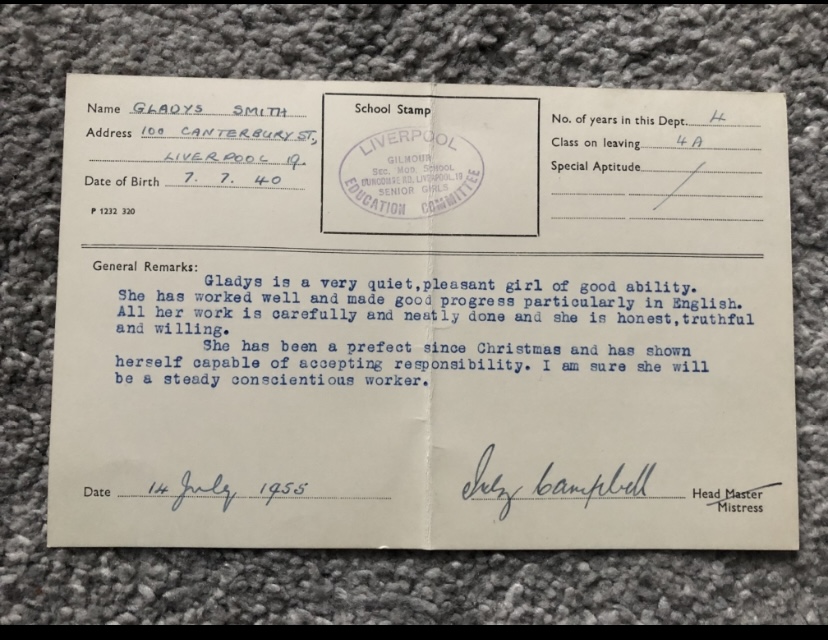 Name GLADYS SMITH
Address 100 CANTERBURY ST,
LIVERPOOL 19.
Date of Birth 7. 7. 40
P 1232 320
School Stamp
LIVERPOOL
GILMOUR
SEC. MOD. SCHOOL
DUNCOMBE RD. LIVERPOOL. 19
SENIOR GIRLS
EDUCATION COMMITTEE
No. of years in this Dept. 4
Class on leaving 4A
Special Aptitude
General Remarks:
Gladys is a very quiet,pleasant girl of good ability.
She has worked well and made good progress particularly in English.
All her work is carefully and neatly done and she is honest,truthful
and willing.
She has been a prefect since Christmas and has shown
herself capable of accepting responsibility. I am sure she will
be a steady conscientious worker.
Date 14 July 1955
Campbell
Head Master
Mistress